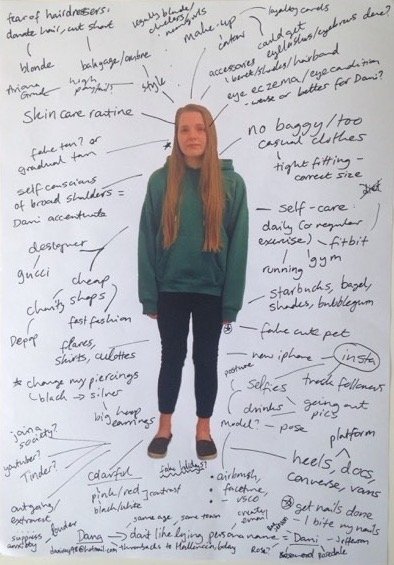 fear of hairdressers:
donate hair, cut short
blonde
balayage/ombre
Ariana
Grande
high
ponytails
legally blonde/
clueless/
style
make-up
contour
loyalty cards
could get
eyelashes/eyebrows done?
accessories
beret/shades/hairband
eye eczema/eye condition
- worse or better for Dani?
skin care routine
no baggy/too
casual clothes
tight fitting -
correct size
fake tan? or
gradual tan
*
self conscious
of broad shoulders =
Dani accentuate
self-care:
diet
daily (or regular
exercise)
fitbit
running
gym
designer
gucci
cheap
charity shops
Depop
fast fashion
starbucks, bagel,
shades, bubblegum
fake cute pet
flares,
skirts, culottes
new iphone
insta
posture
selfies
track followers
* change my piercings
black → silver
big hoop
earrings
drinks
going out
pics
model?
pose
platform
heels, docs,
converse, vans
join a
society?
youtuber?
Tinder?
colorful
pink/red
black/white
contrast
fake holidays?
airbrush,
facetune,
vsco
get nails done
- I bite my nails
outgoing/
extrovert
louder
suppress
anxiety
same age, same town
Dana → don't like lying, persona name = Dani - Jefferson
throwbacks to Halloween, bday
Rose?
Rosedale